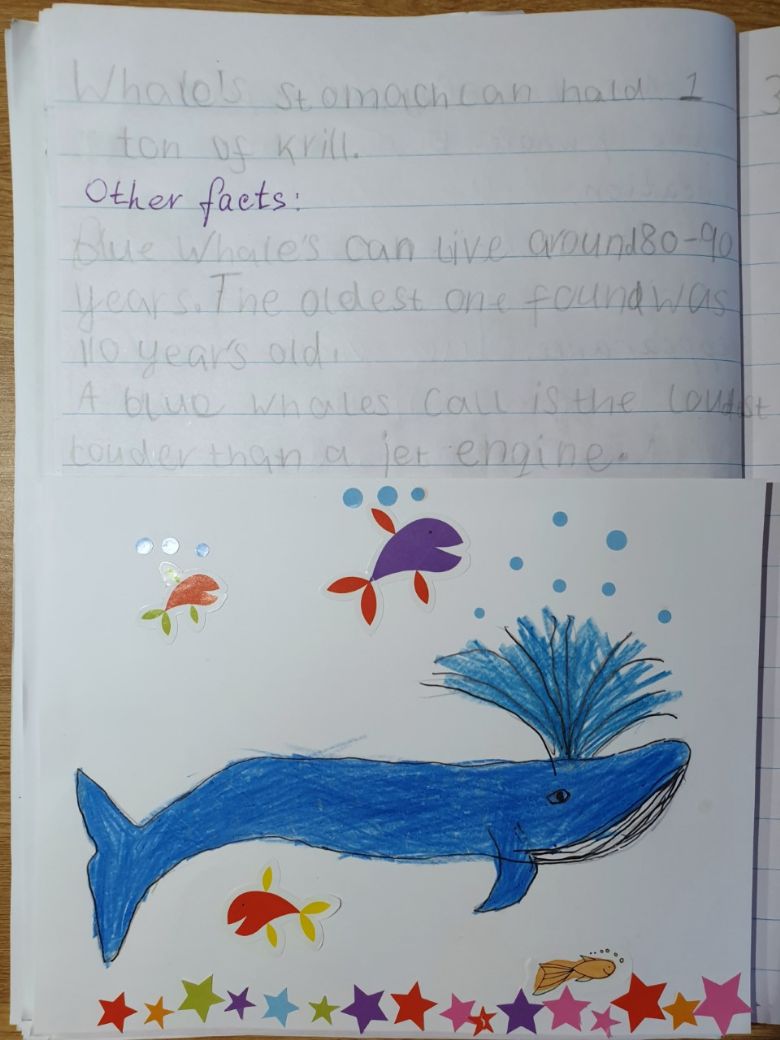 Whale's stomach can hald 1
ton of krill.
Other facts:
Blue Whale's can live around 80-90
years. The oldest one found was
110 year's old.
A blue whales call is the loudest
Louder than a jet engine.